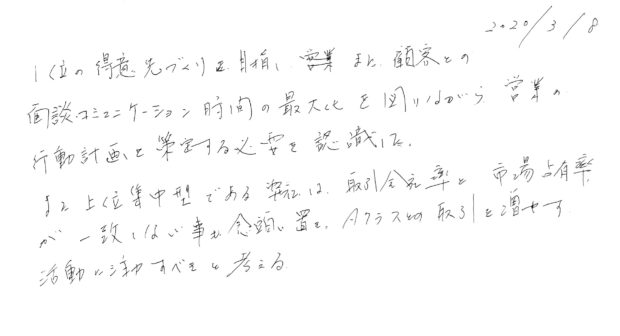 2020/3/8
1位の得意先づくりを目指し、また顧客との
面談コミュニケーション時間の最大化を図りながら営業の
行動計画を策定する必要を認識した。
また上位集中型である弊社は、取引会社率と市場占有率
が一致しない事も念頭に置き、Aクラスとの取引を増やす
活動に注力すべきと考える